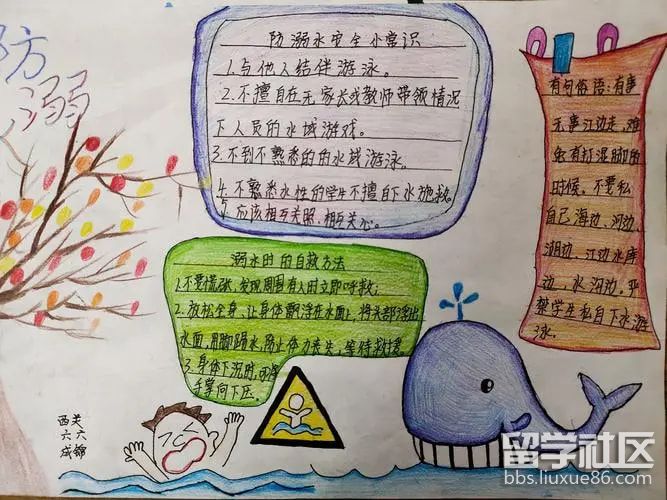 防
溺
防溺水安全小常识
1.与他人结伴游泳。
2.不擅自在无家长或教师带领情况
下人员的水域游戏。
3.不到不熟悉的的水域游泳。
4.不熟悉水性的学生不擅自下水施救。
5.应该相互关照、相互关心。
溺水时的自救方法
1.不要慌张,发现周围有人时立即呼救;
2.放松全身,让身体飘浮在水面上,将头部浮出
水面,用脚踢水,防止体力丧失,等待救援
3.身体下沉时,可将
手掌向下压。
有句俗语:有事
无事江边走,难
免有打湿脚的
时候,不要私
自己海边、河边、
湖边、江边水库
边,水沟边,严
禁学生私自下水游
泳。
西关
六六
成锦
留学社区
bbs.liuxue86.com